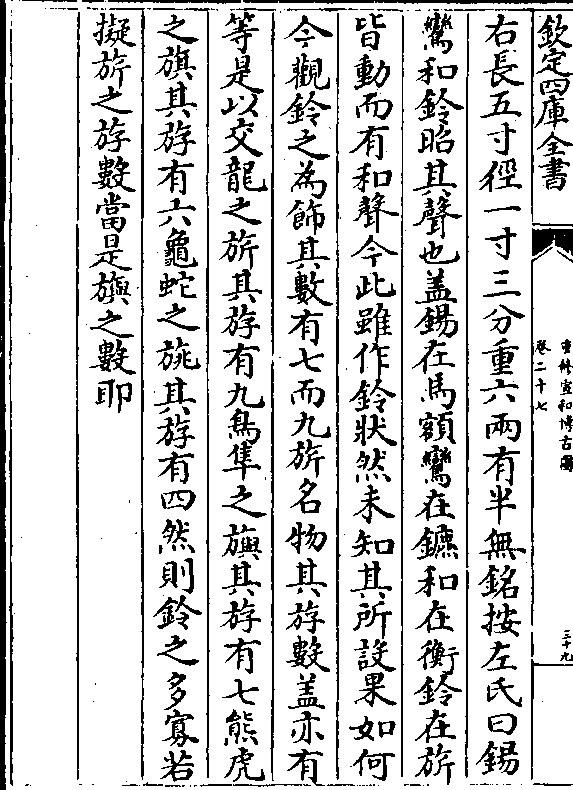 欽定四庫全書
重修宣和博古圖
卷二十七
三十九
右長五寸徑一寸三分重六兩有半無銘按左氏曰鍚
鸞和鈴昭其聲也蓋鍚在馬額鸞在鑣和在衡鈴在旂
皆動而有和聲今此雖作鈴狀然未知其所設果如何
今觀鈴之為飾其數有七而九旂名物其斿數蓋亦有
等是以交龍之旂其斿有九鳥隼之旟其斿有七熊虎
之旗其斿有六龜蛇之旐其斿有四然則鈴之多寡若
擬旂之斿數當是旟之數耶